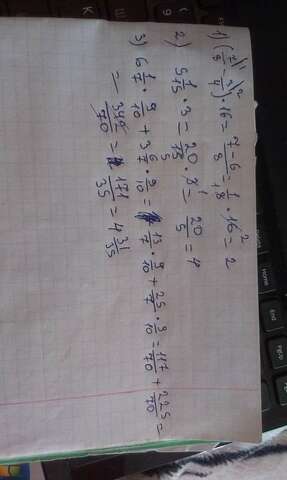 1) (7/8 - 3/4) · 16 = 7-6/8 = 1/8 · 16 = 2
2) 5 1/15 · 3 = 20/15 · 3 = 20/5 = 4
3) 6 1/7 · 9/10 + 3 4/7 · 9/10 = 13/7 · 9/10 + 25/7 · 9/10 = 117/70 + 225/70 =
= 342/70 = 171/35 = 4 31/35
Home
End